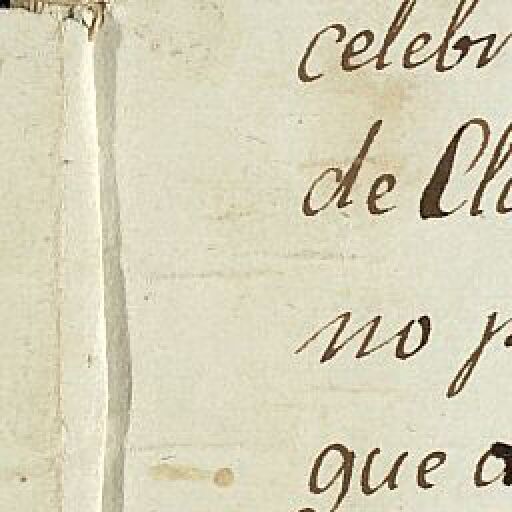 celebr
de Cla
no p
que a